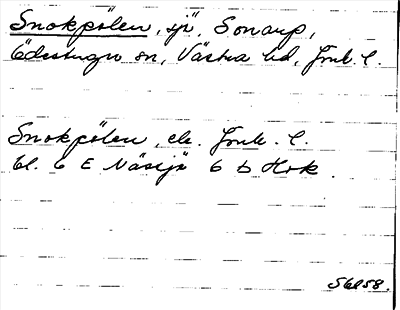 Snokpölen, sjö, Sonarp,
Ödestugu sn, Västra hd, Jönk. l.
Snokpölen, ek. Jönk. l.
bl. 6 E Nässjö 6 D Hok